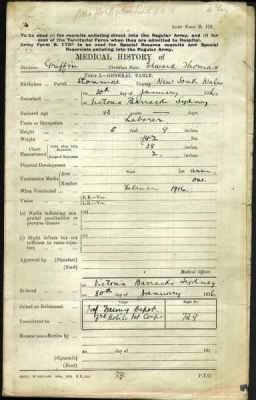 ARMY FORM B. 178.
To be used (i) for recruits enlisting direct into the Regular Army, and (ii) for
men of the Territorial Force when they are admitted to Hospital.
Army Form B. 178A to be used for Special Reserve recruits and Special
Reservists enlisting into the Regular Army.
MEDICAL HISTORY of
Surname Griffin Christian Name Edward Thomas
TABLE I.—GENERAL TABLE.
Birthplace Parish Stanmore County New South Wales
Examined on 20th day of January 1916
at Victoria Barracks Sydney
Declared Age
Trade or Occupation Laborer
Height 5 feet 9 inches
Weight 142 lbs.
Chest Measurement 38
2
arm
Vaccination Marks one
When Vaccinated February 1916
R.E.—V=
L.E.—V=
(a) Marks indicating congenital peculiarities or previous disease
(b) Slight defects but not sufficient to cause rejection
Approved by (Signature)
(Rank)
Medical Officer.
Enlisted at Victoria Barracks Sydney
on 20th day of January 1916
Joined on Enlistment
Regtl. No.
Transferred to
729
Became non-Effective by
on day of 191
(Signature)
(Rank)
P.T.O.